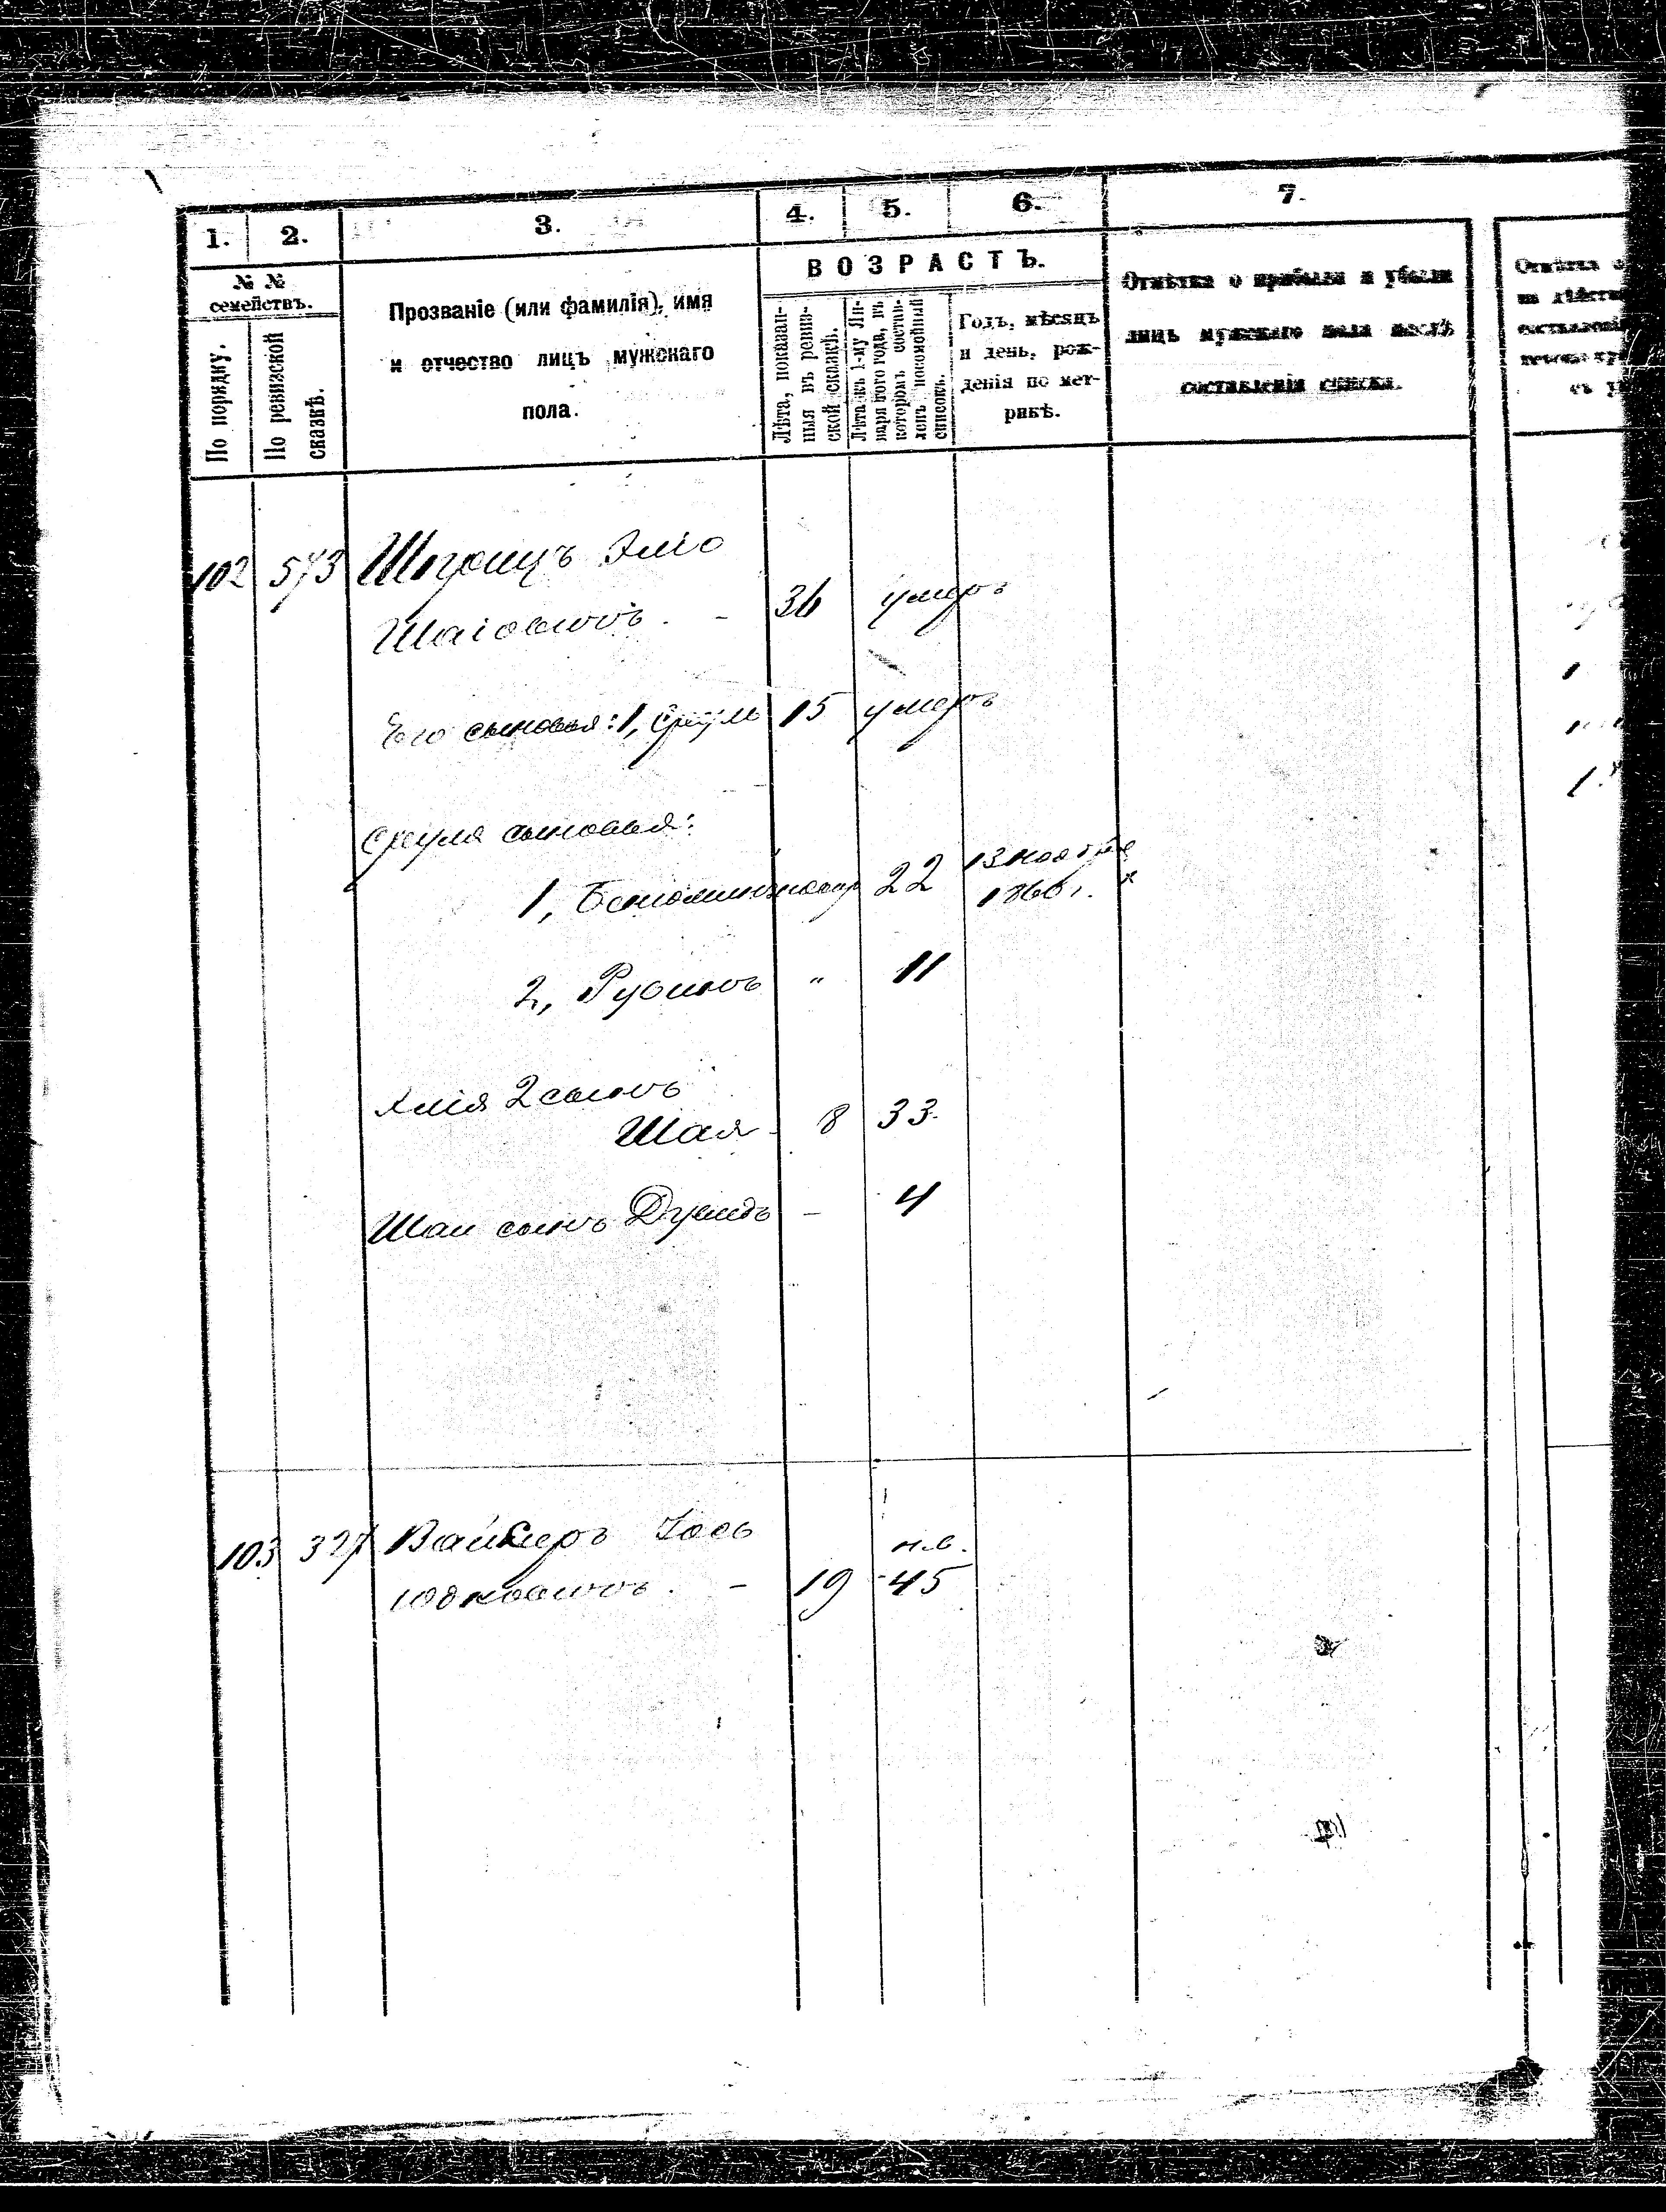 1. 2. 3. 4. 5. 6. 7.
№ №
семействъ.
По порядку.
По ревизской
сказкѣ.
Прозваніе (или фамилія), имя
и отчество лицъ мужскаго
пола.
ВОЗРАСТЪ.
Лѣта, показан-
ныя въ ревиз-
ской сказкѣ.
Лѣта къ 1-му Ян-
варя того года, въ
которомъ состав-
ленъ посемейный
списокъ.
Годъ, мѣсяцъ
и день, рож-
денія по мет-
рикѣ.
Отмѣтка о прибыли и убыли
лицъ мужскаго пола послѣ
составленія списка.
102 573
Шаіовичъ. - 36 умеръ
Его сыновья: 1, Сруль 15 умеръ
Сруля сыновья:
22 13 ноября
1, 1860 г. х
2, Рубинъ " 11
2 сынъ
Шая - 8 33.
Шаи сынъ - 4
103 327
н.в.
Юдковичъ. - 19 45